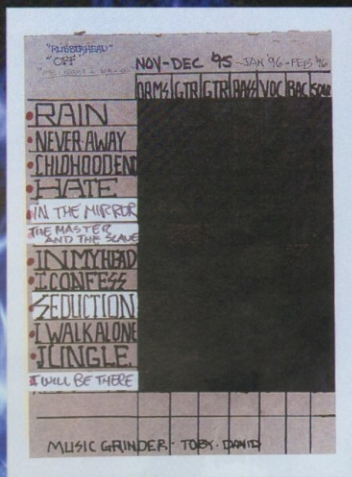 "RUBBERHEAD"
"OFF"
NOV-DEC '95 -JAN '96 -FEB '96
DRMS GTR GTR BASS VOC BAC SOLO
RAIN
NEVER AWAY
CHLDHOODEND
HATE
IN THE MIRROR
THE MASTER
AND THE SLAVE
IN MY HEAD
I CONFESS
SEDUCTION
I WALK ALONE
JUNGLE
I WILL BE THERE
MUSIC GRINDER · TOBY · DAVID